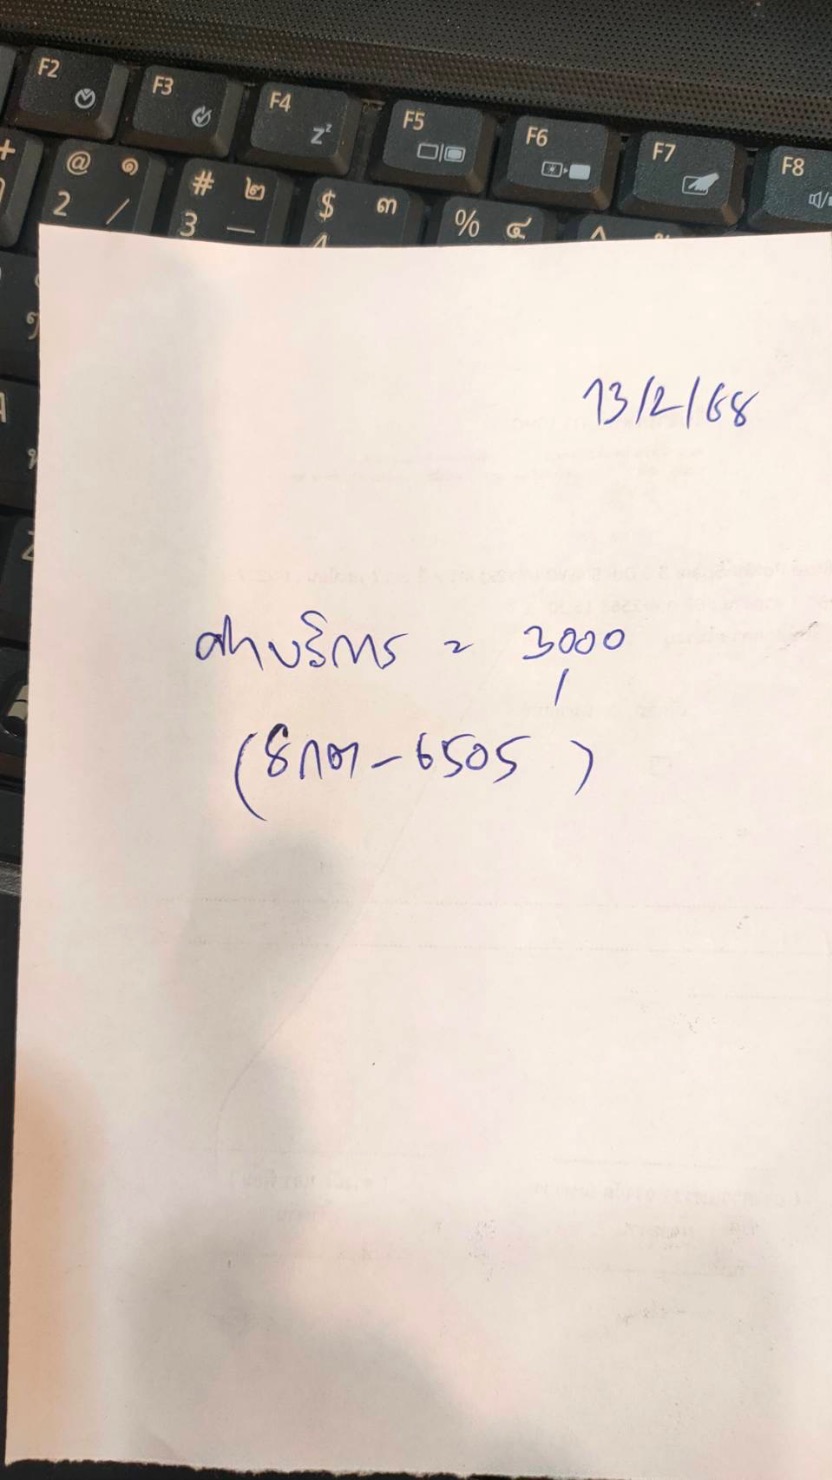 F2
F3
F4 Zz
F5
F6
F7
F8
+
@ ๑
2 /
# ๒
3 _
$ ๓
% ๔
13/2/68
ค่าบริการ = 3000
(8กต-6505)